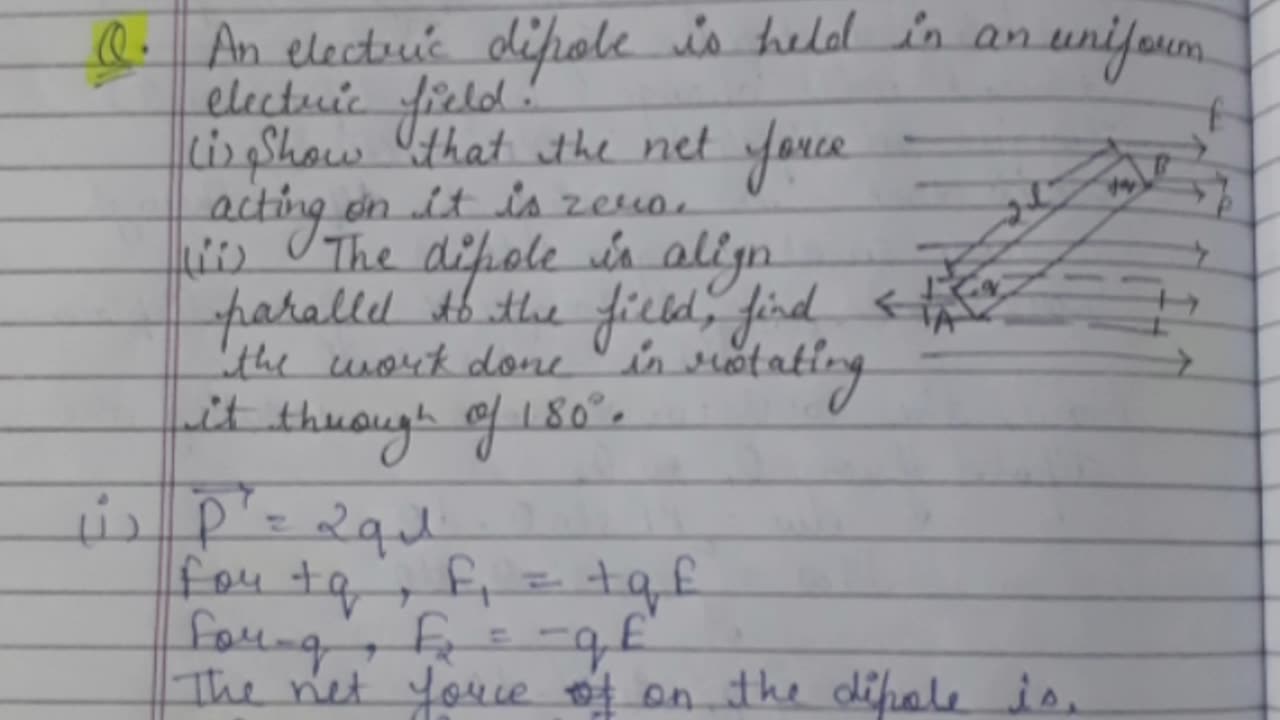 Q. An electric dipole is held in an uniform
electric field.
(i) Show that the net force
acting on it is zero.
(ii) The dipole is align
parallel to the field, find
the work done in rotating
it through of 180°.
E
B
+q
2l
-q
A
(i) P = 2ql
For +q, F₁ = +qE
For -q, F₂ = -qE
The net force on the dipole is,